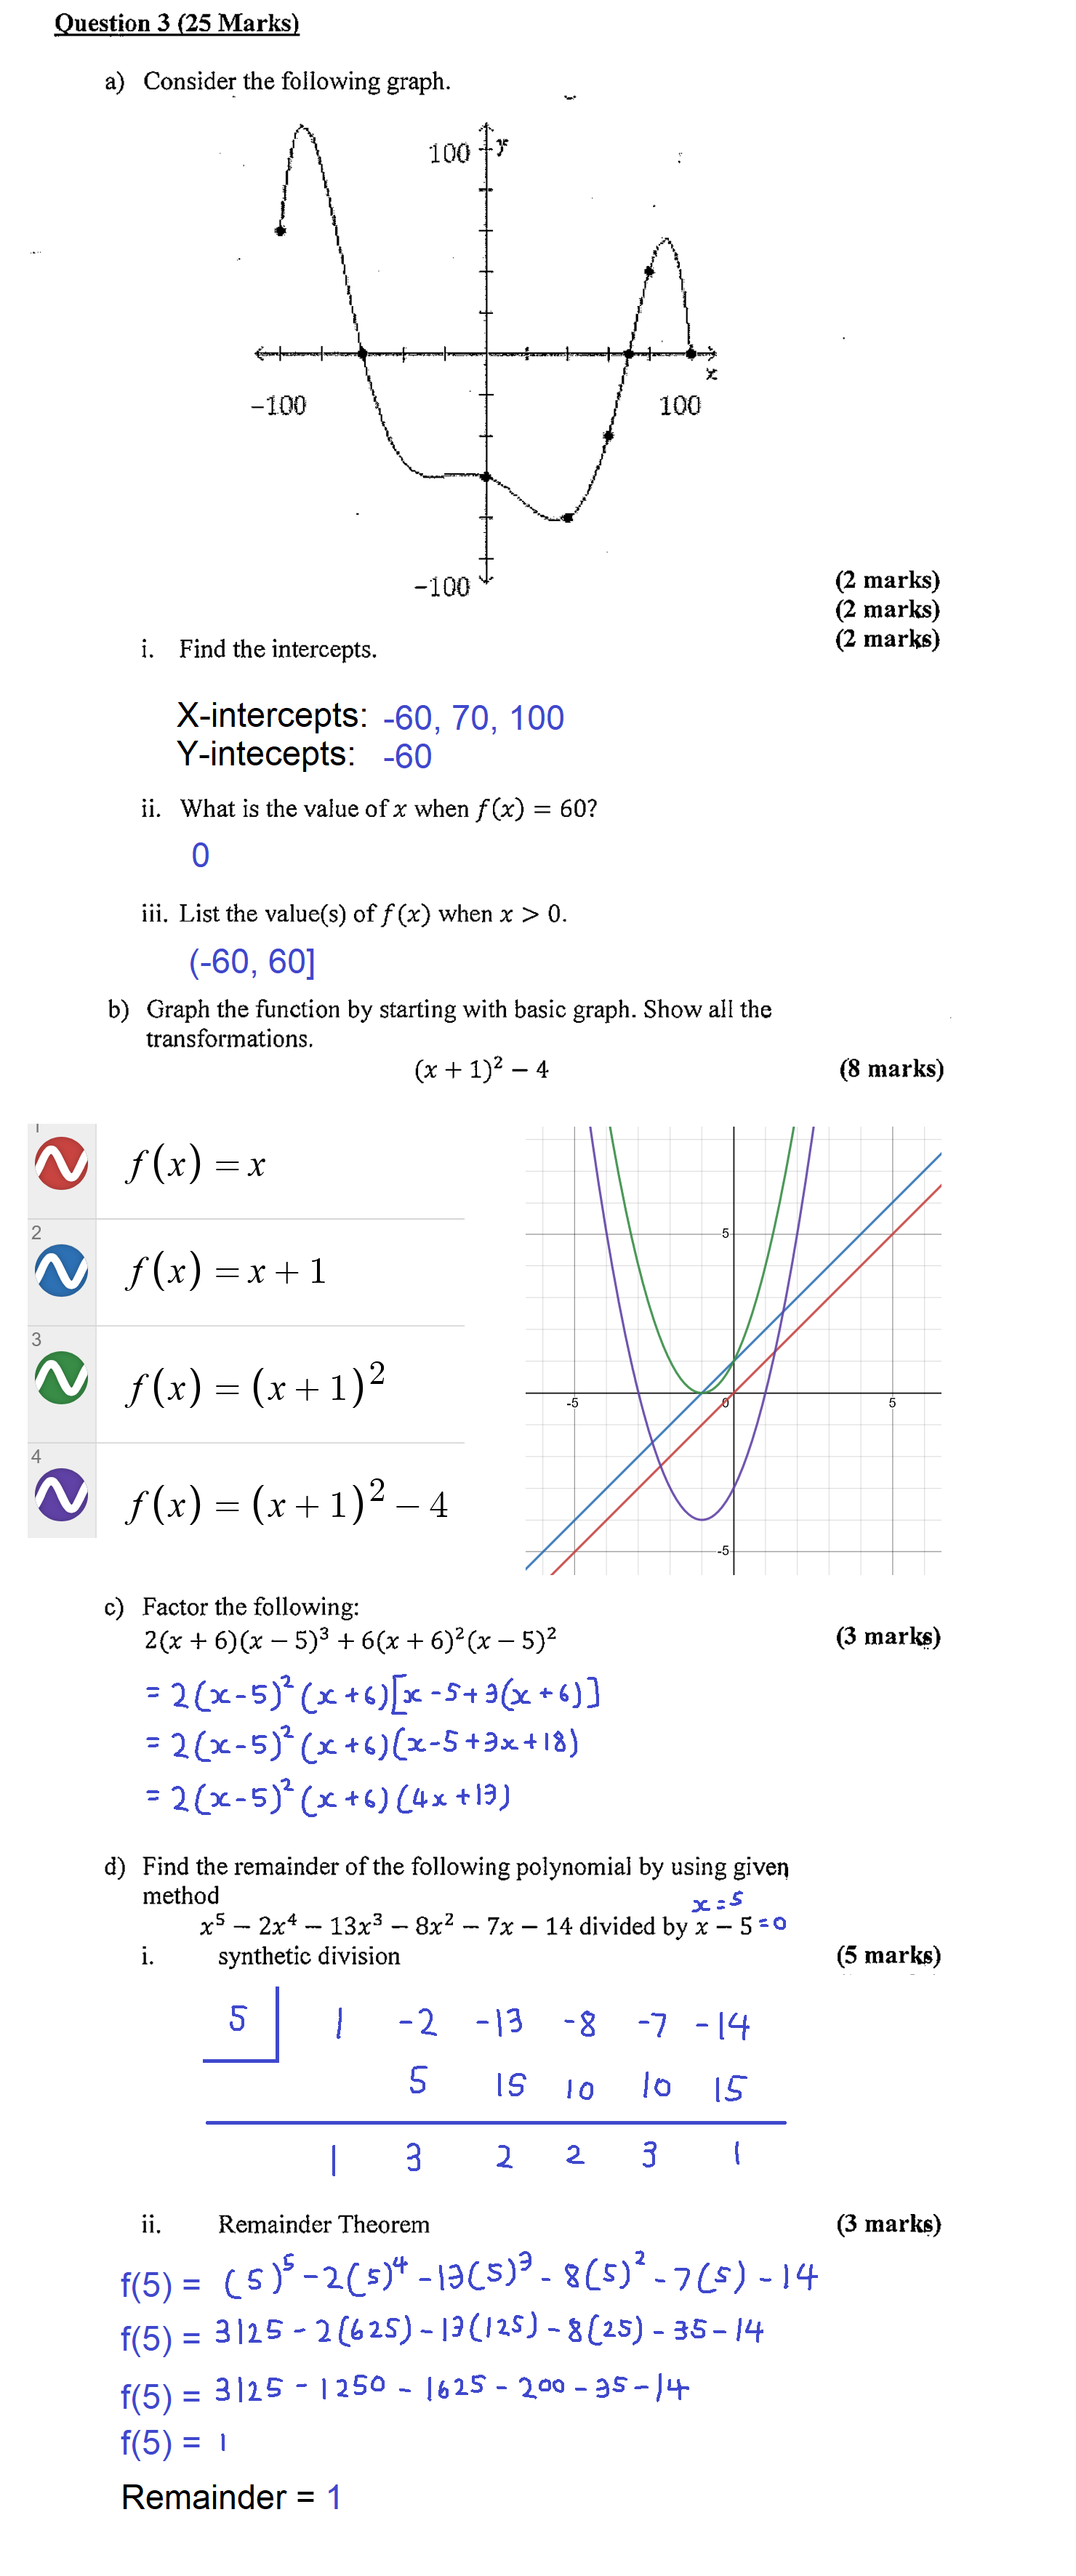 Question 3 (25 Marks)
a) Consider the following graph.
100 y
x
-100 100
-100
(2 marks)
(2 marks)
(2 marks)
i. Find the intercepts.
X-intercepts: -60, 70, 100
Y-intecepts: -60
ii. What is the value of x when f(x) = 60?
0
iii. List the value(s) of f(x) when x > 0.
(-60, 60]
b) Graph the function by starting with basic graph. Show all the
transformations.
(x + 1)² − 4 (8 marks)
1 f(x) = x
2 f(x) = x + 1
3 f(x) = (x + 1)²
4 f(x) = (x + 1)² − 4
5
-5 0 5
-5
c) Factor the following:
2(x + 6)(x − 5)³ + 6(x + 6)²(x − 5)² (3 marks)
= 2(x-5)²(x+6)[x-5+3(x+6)]
= 2(x-5)²(x+6)(x-5+3x+18)
= 2(x-5)²(x+6)(4x+13)
d) Find the remainder of the following polynomial by using given
method
x=5
x⁵ − 2x⁴ − 13x³ − 8x² − 7x − 14 divided by x − 5 =0
i. synthetic division (5 marks)
5 1 -2 -13 -8 -7 -14
5 15 10 10 15
1 3 2 2 3 1
ii. Remainder Theorem (3 marks)
f(5) = (5)⁵-2(5)⁴-13(5)³-8(5)²-7(5)-14
f(5) = 3125-2(625)-13(125)-8(25)-35-14
f(5) = 3125-1250-1625-200-35-14
f(5) = 1
Remainder = 1